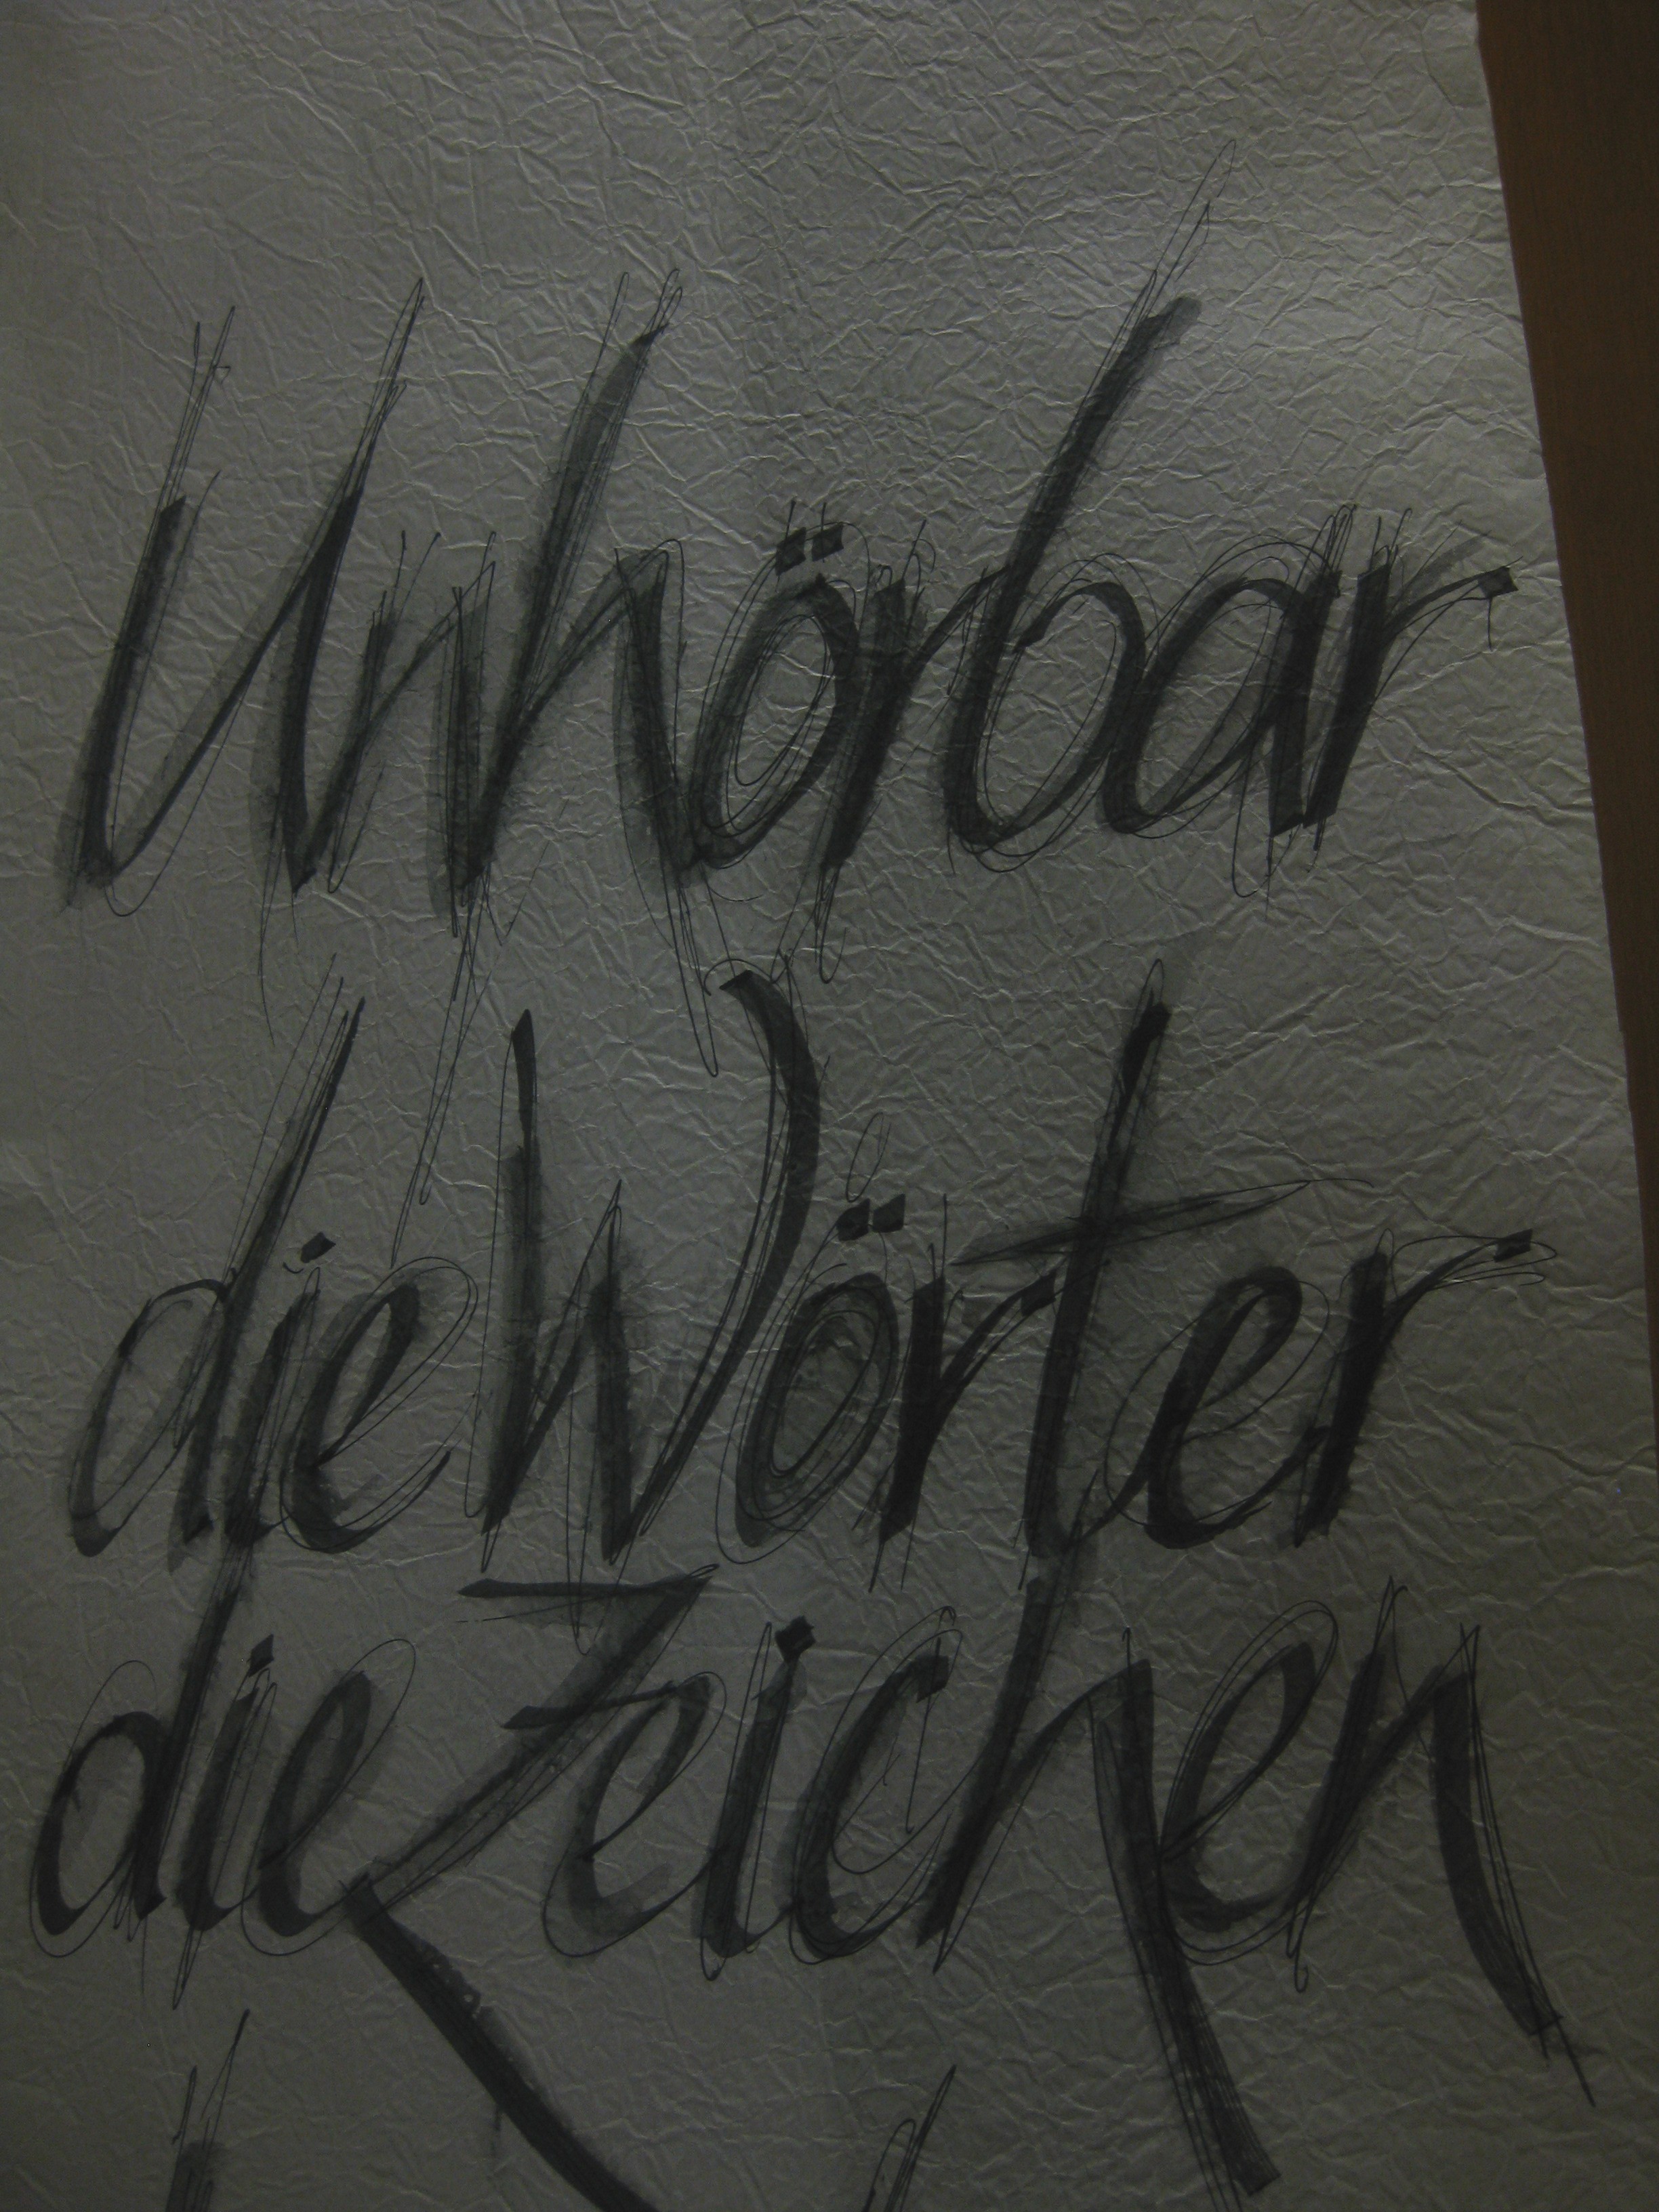 Unhörbar
die Wörter
die Zeichen